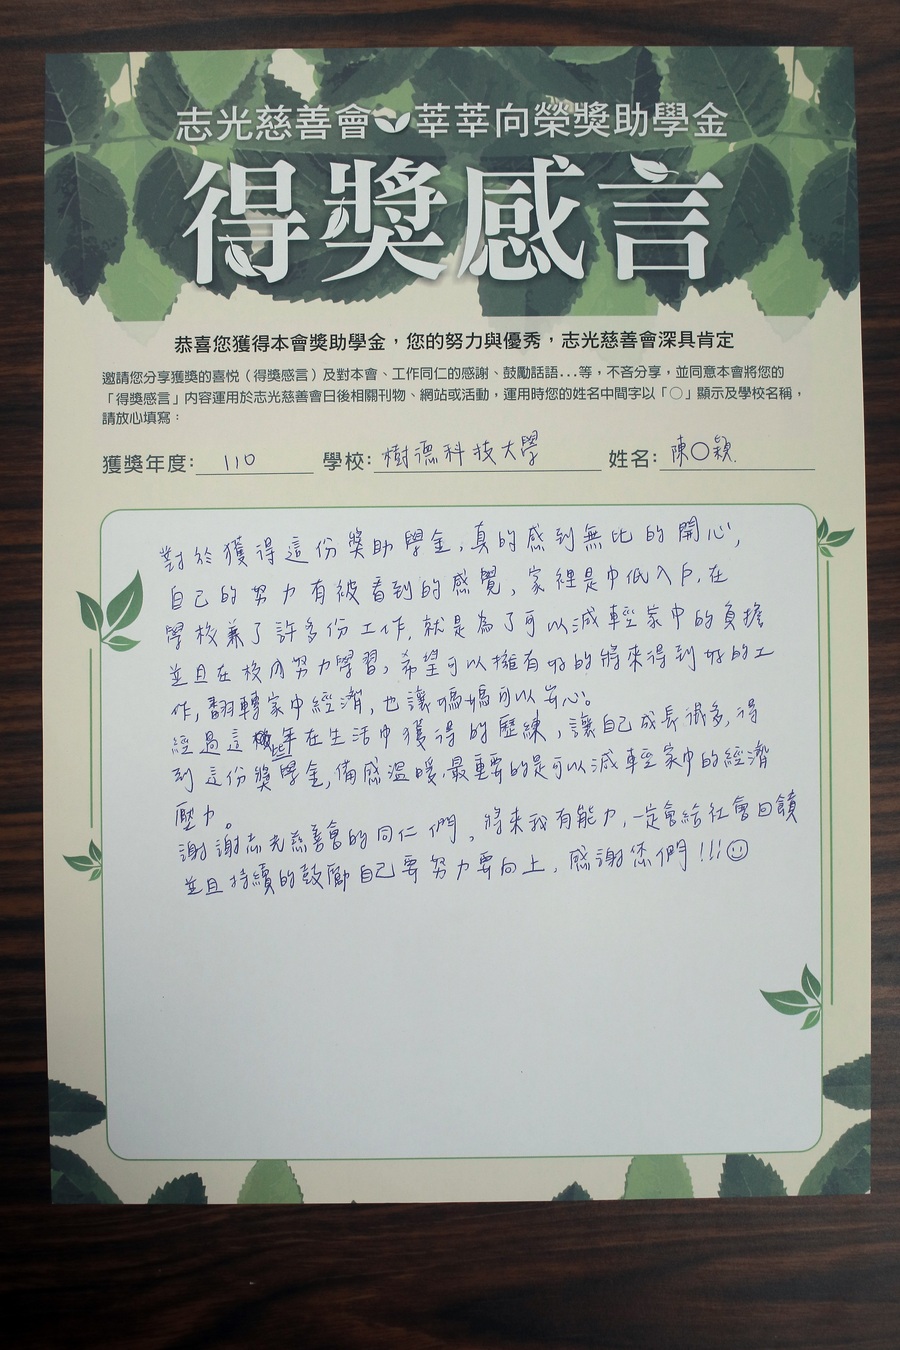 志光慈善會 莘莘向榮獎助學金
得獎感言
恭喜您獲得本會獎助學金，您的努力與優秀，志光慈善會深具肯定
邀請您分享獲獎的喜悅（得獎感言）及對本會、工作同仁的感謝、鼓勵話語...等，不吝分享，並同意本會將您的
「得獎感言」内容運用於志光慈善會日後相關刊物、網站或活動，運用時您的姓名中間字以「○」顯示及學校名稱，
請放心填寫：
獲獎年度: 110 學校: 樹德科技大學 姓名: 陳○穎.
對於獲得這份獎助學金,真的感到無比的開心,
自己的努力有被看到的感覺,家裡是中低入戶.在
學校兼了許多份工作,就是為了可以減輕家中的負擔
並且在校內努力學習,希望可以擁有好的將來得到好的工
作,翻轉家中經濟,也讓媽媽可以安心。
經過這些年在生活中獲得的歷練,讓自己成長很多,得
到這份獎學金,備感溫暖.最重要的是可以減輕家中的經濟
壓力。
謝謝志光慈善會的同仁們,將來我有能力,一定會給社會回饋
並且持續的鼓勵自己要努力要向上,感謝您們!!!☺